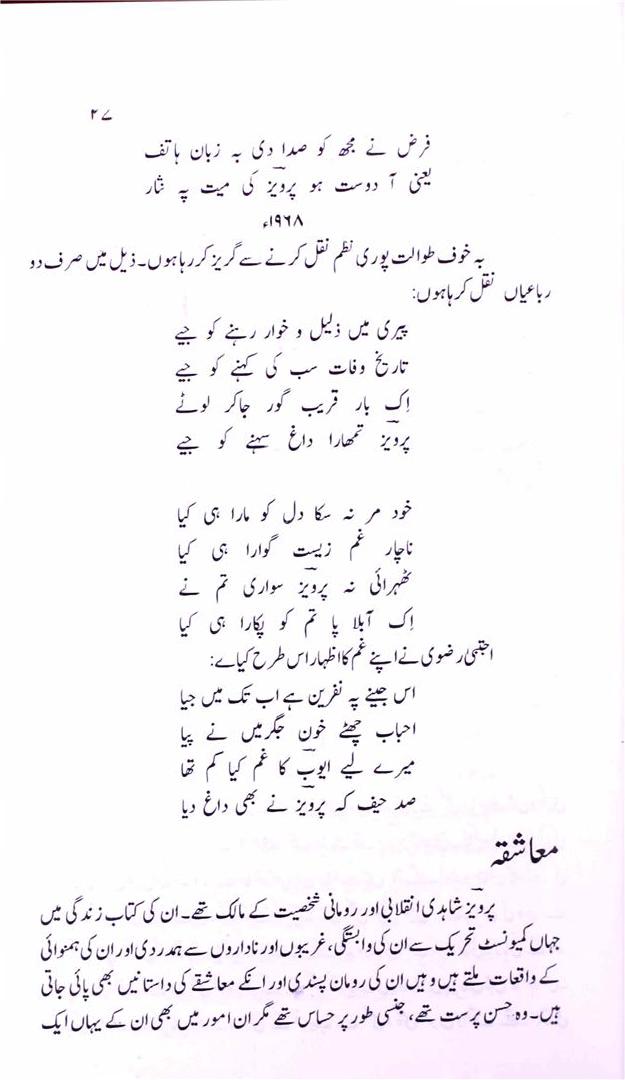 ۴۷
فرض نے مجھ کو صدا دی بہ زبان ہاتف
یعنی آ دوست ہو پرویز کی میت پہ نثار
۱۹۶۸ء
بہ خوف طوالت پوری نظم نقل کرنے سے گریز کر رہا ہوں۔ ذیل میں صرف دو
رباعیاں نقل کر رہا ہوں:
پیری میں ذلیل و خوار رہنے کو جیے
تاریخ وفات سب کی کہنے کو جیے
اِک بار قریب گور جا کر لوٹے
پرویز تمھارا داغ سہنے کو جیے
خود مر نہ سکا دل کو مارا ہی کیا
ناچار غم زیست گوارا ہی کیا
ٹھہرائی نہ پرویز سواری تم نے
اِک آبلا پا تم کو پکارا ہی کیا
اجتبیٰ رضوی نے اپنے غم کا اظہار اس طرح کیا ے:
اس جینے پہ نفرین ہے اب تک میں جیا
احباب چھٹے خون جگر میں نے پیا
میرے لیے ایوب کا غم کیا کم تھا
صد حیف کہ پرویز نے بھی داغ دیا
معاشقہ
پرویز شاہدی انقلابی اور رومانی شخصیت کے مالک تھے۔ ان کی کتاب زندگی میں
جہاں کمیونسٹ تحریک سے ان کی وابستگی، غریبوں اور ناداروں سے ہمدردی اور ان کی ہمنوائی
کے واقعات ملتے ہیں وہیں ان کی رومان پسندی اور انکے معاشقے کی داستانیں بھی پائی جاتی
ہیں۔ وہ حسن پرست تھے، جنسی طور پر حساس تھے مگر ان امور میں بھی ان کے یہاں ایک